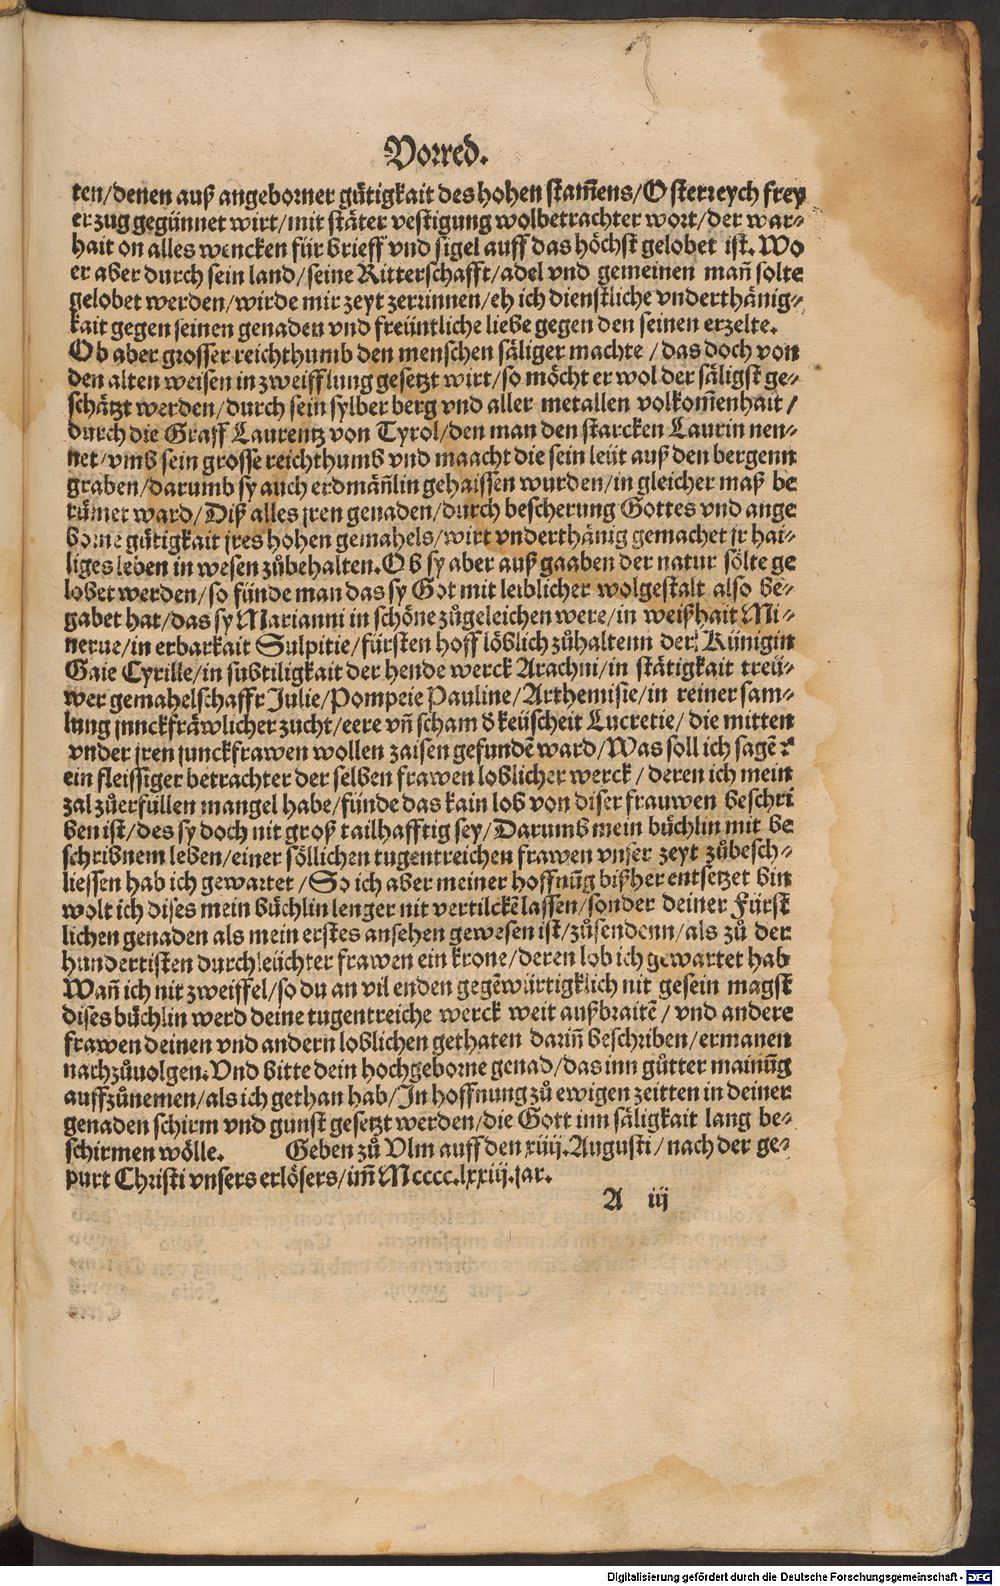 Vorred.
ten/denen auß angeborner gütigkait des hohen stam̃ens/Osterreych frey
er zug gegünnet wirt/mit stäter vestigung wolbetrachter wort/der war-
hait on alles wencken für brieff vnd sigel auff das höchst gelobet ist. Wo
er aber durch sein land/seine Ritterschafft/adel vnd gemeinen man̄ solte
gelobet werden/wirde mir zeyt zerrinnen/eh ich dienstliche vnderthänig-
kait gegen seinen genaden vnd freüntliche liebe gegen den seinen erzelte.
Ob aber grosser reichthumb den menschen säliger machte/das doch von
den alten weisen in zweifflung gesetzt wirt/so möcht er wol der säligst ge-
schätzt werden/durch sein sylber berg vnd aller metallen volkom̃enhait/
durch die Graff Laurentz von Tyrol/den man den starcken Laurin nen-
net/vmb sein grosse reichthumb vnd maacht die sein leüt auß den bergenn
graben/darumb sy auch erdmän̄lin gehaissen wurden/in gleicher maß be
rümet ward/Diß alles jren genaden/durch bescherung Gottes vnd ange
borne gütigkait jres hohen gemahels/wirt vnderthänig gemachet jr hai-
liges leben in wesen zůbehalten. Ob sy aber auß gaaben der natur sölte ge
lobet werden/so fünde man das sy Got mit leiblicher wolgestalt also be-
gabet hat/das sy Marianni in schöne zůgeleichen were/in weißhait Mi-
nerue/in erbarkait Sulpitie/fürsten hoff löblich zůhaltenn der Künigin
Gaie Cyrille/in subtiligkait der hende werck Arachni/in stätigkait treü-
wer gemahelschafft Julie/Pompeie Pauline/Arthemisie/in reiner sam-
lung jnnckfräwlicher zucht/eere vn̄ scham d̕ keüscheit Lucretie/die mitten
vnder jren junckfrawen wollen zaisen gefundē ward/Was soll ich sagē?
ein fleissiger betrachter der selben frawen loblicher werck/deren ich mein
zal zůerfüllen mangel habe/fünde das kain lob von diser frauwen beschri
ben ist/des sy doch nit groß tailhafftig sey/Darumb mein büchlin mit be
schribnem leben/einer söllichen tugentreichen frawen vnser zeyt zůbesch-
liessen hab ich gewartet/So ich aber meiner hoffnūg bißher entsetzet bin
wolt ich dises mein büchlin lenger nit vertilckē lassen/sonder deiner Fürst
lichen genaden als mein erstes ansehen gewesen ist/zůsendenn/als zů der
hundertisten durchleüchter frawen ein krone/deren lob ich gewartet hab
Wan̄ ich nit zweiffel/so du an vil enden gegēwürtigklich nit gesein magst
dises büchlin werd deine tugentreiche werck weit außbraitē/vnd andere
frawen deinen vnd andern loblichen gethaten darin̄ beschriben/ermanen
nachzůuolgen. Vnd bitte dein hochgeborne genad/das inn gůtter mainūg
auffzůnemen/als ich gethan hab/In hoffnung zů ewigen zeitten in deiner
genaden schirm vnd gunst gesetzt werden/die Gott inn säligkait lang be-
schirmen wölle. Geben zů Vlm auff den xiiij. Augusti/nach der ge-
purt Christi vnsers erlösers/im̄ Mcccc.lxxiij.jar.
A iij
Digitalisierung gefördert durch die Deutsche Forschungsgemeinschaft - DFG